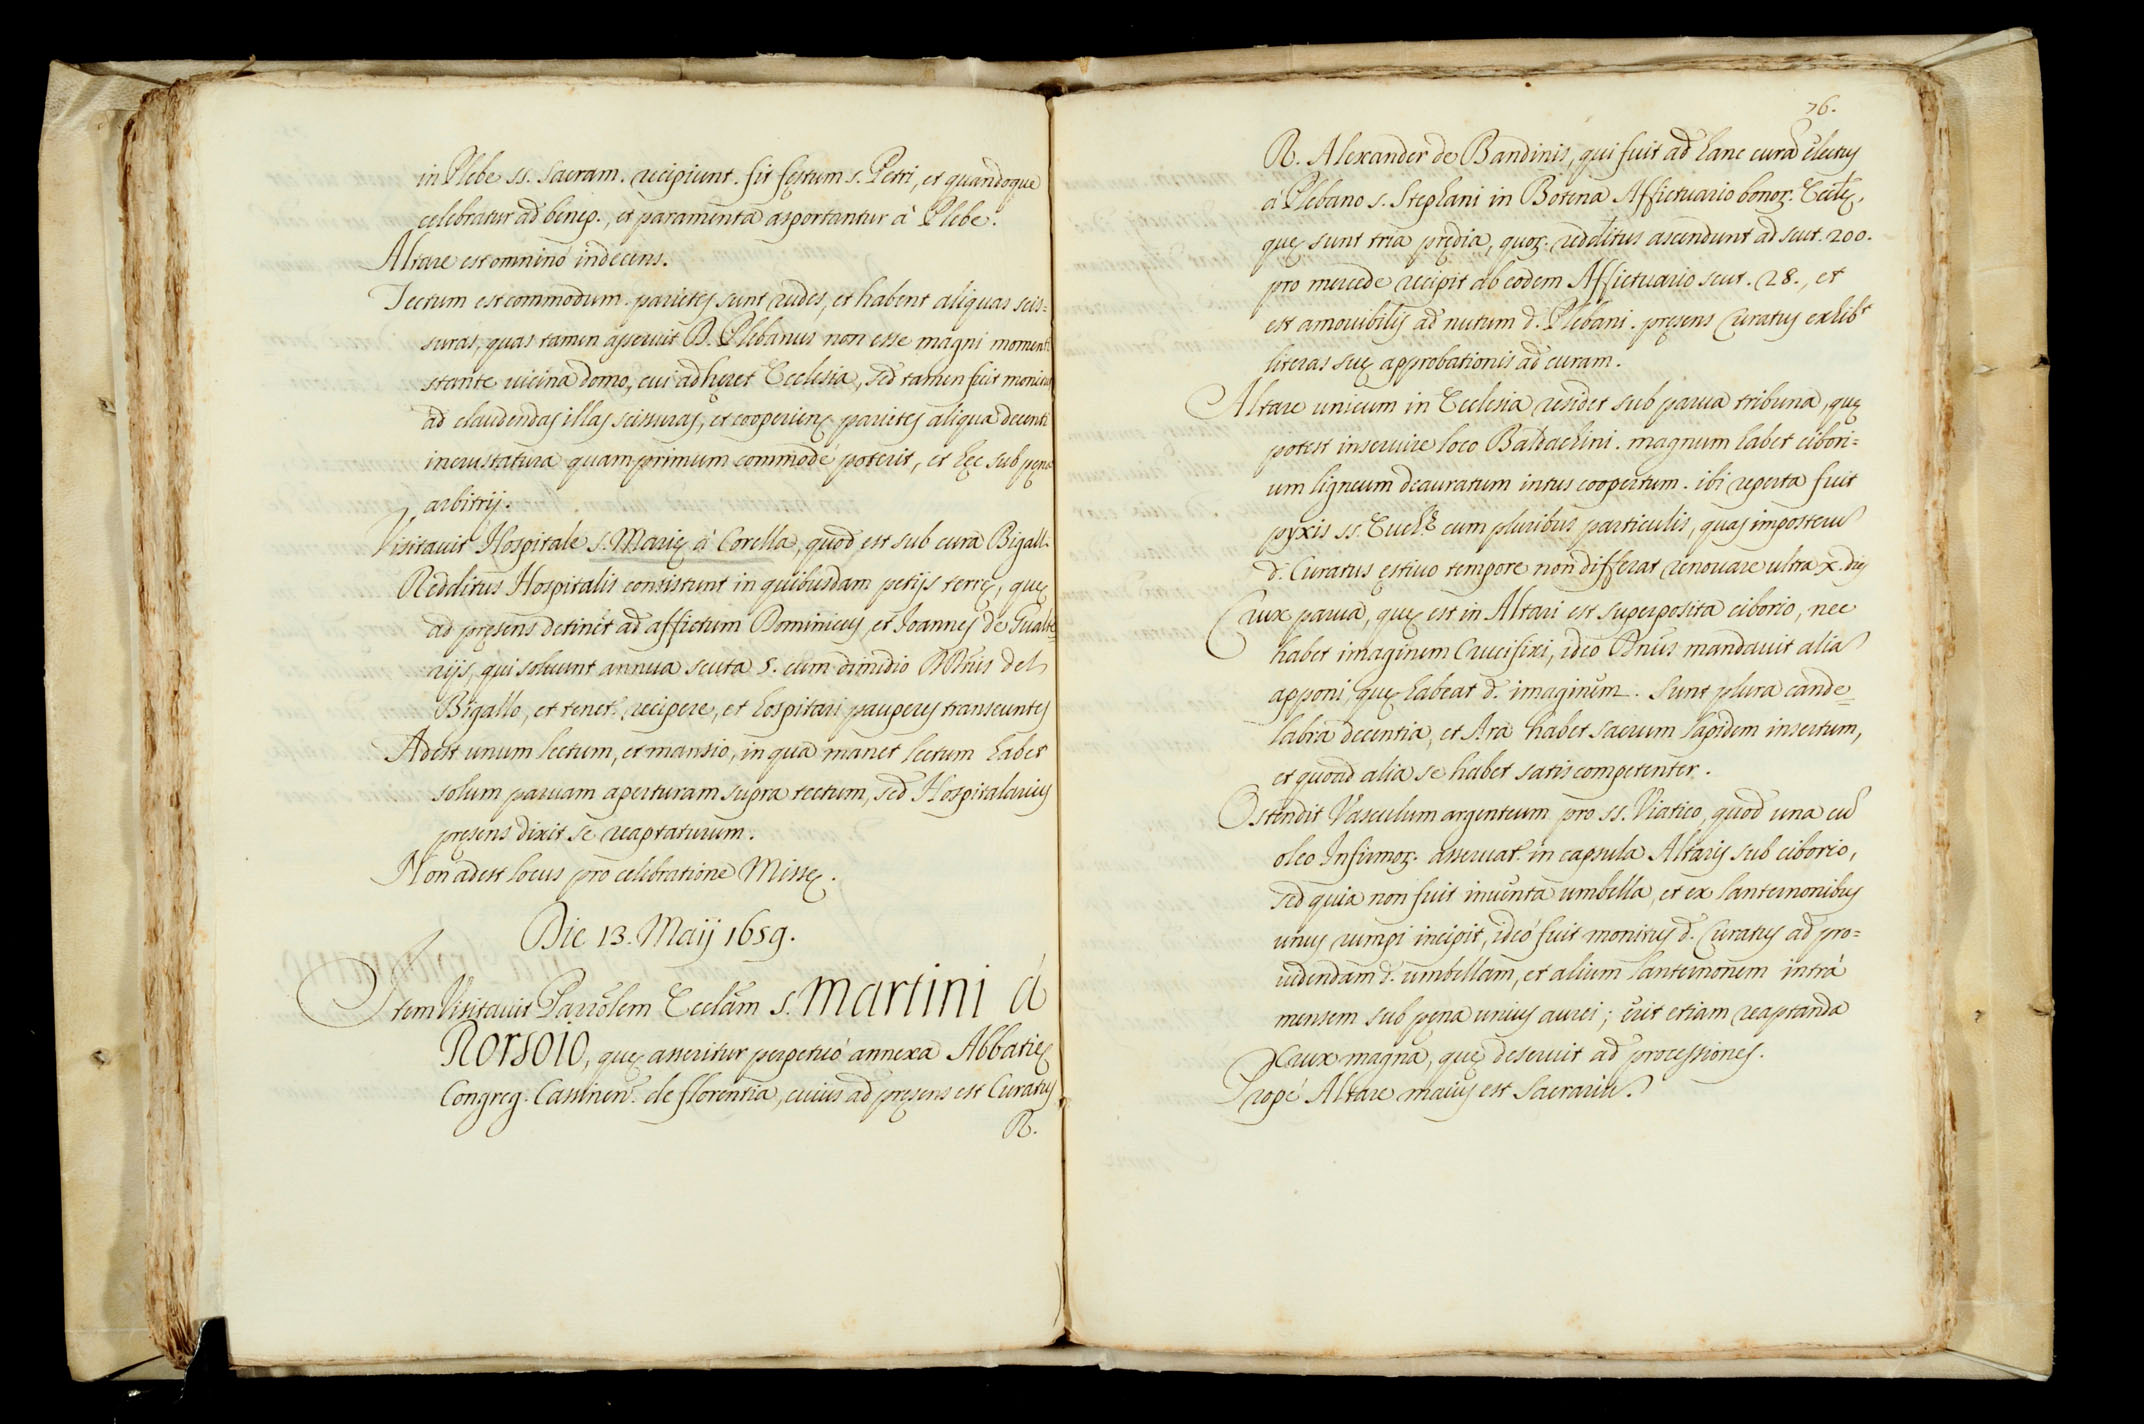 in Plebe ss. sacram. recipiunt. fit festum s. Petri, et quandoque
celebratur ad benep., et paramenta asportantur à Plebe.
Altare est omninò indecens.
Tectum est commodum. parietes sunt rudes, et habent aliquas scis=
suras, quas tamen asseruit R. Plebanus non esse magni momenti
stante uicina domo, cui adhęret Ecclesia, sed tamen fuit monitus
ad claudendas illas scissuras, et cooperiens parietes aliqua decenti
incrustatura quamprimum commodè poterit, et hęc sub pęna
arbitrij.
Visitauit Hospitale s. Marię à Corella, quod est sub cura Bigall.
Redditus Hospitalis consistunt in quibusdam petijs terrę, quę
ad pręsens detinet ad affictum Dominicus, et Joannes de Gualte
rijs, qui soluunt annua scuta 5. cum dimidio DDnis del
Bigallo, et tenet.r recipere, et hospitari pauperes transeuntes
Adest unum lectum, et mansio, in qua manet lectum habet
solum paruam aperturam supra tectum, sed Hospitalarius
pręsens dixit se reaptaturum.
Non adest locus pro celebratione Missę.
Die 13. Maij 1659.
Item Visitauit Parrõlem Ecclãm s. Martini à
Rorsoio, quę asseritur perpetuò annexa Abbatię
Congreg. Cassinen. de florentia, cuius ad pręsens est Curatus
R.
76.
R. Alexander de Bandinis, qui fuit ad hanc curã electus
à Plebano s. Stephani in Botena Affictuario bonoꝝ. Eccłę,
quę sunt tria prędia, quoꝝ. redditus ascendunt ad scut. 200.
pro mercede recipit ab eodem Affictuario scut. 28., et
est amouibilis ad nutum d. Plebani. pręsens Curatus exhibt
literas suę approbationis ad curam.
Altare unicum in Ecclesia residet sub parua tribuna, quę
potest inseruire loco Baldachini. magnum habet cibori=
um ligneum deauratum intus coopertum. ibi reperta fuit
pyxis ss. Euch.ę cum pluribus particulis, quas imposterũ
d. Curatus ęstiuo tempore non differat renouare ultra x. dies
Crux parua, quę est in Altari est superposita ciborio, nec
habet imaginem Crucifixi, ideo Rm̃us mandauit aliã
apponi, quę habeat d. imaginem. Sunt plura cande=
labra decentia, et Ara habet sacrum lapidem insertum,
et quoad alia se habet satis competenter.
Ostendit Vasculum argenteum pro ss. Viatico, quod una cũ
oleo Infirmoꝝ. asseruat.r in capsula Altaris sub ciborio,
sed quia non fuit inuenta umbella, et ex lanternonibus
unus rumpi incipit, ideò fuit monitus d. Curatus ad pro=
uidendam d. umbellam, et alium lanternonem intrà
mensem sub pęna unius aurei; erit etiam reaptanda
Crux magna, quę deseruit ad processiones.
Propè Altare maius est Sacrariũ.